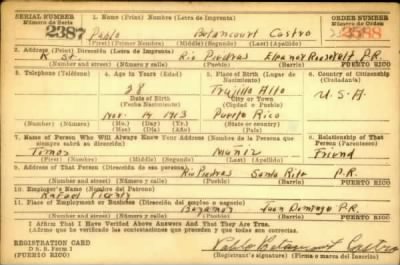 SERIAL NUMBER
Número de Serie
1. Name (Print) (Nombre) (Letra de Imprenta)
ORDER NUMBER
Número de Orden
2387 Pablo Betancourt Castro 3588
(First) (Primer Nombre) (Middle) (Segundo) (Last) (Apellido)
2. Address (Print) (Dirección) (Letra de Imprenta)
K St. Rio Piedras Eleanor Roosevelt P.R.
(Number and street) (Número y calle) (Town) (Pueblo) (Barrio) PUERTO RICO
3. Telephone (Teléfono) 4. Age in Years (Edad) 5. Place of Birth (Lugar de Nacimiento) 6. Country of Citizenship (Ciudadanía)
28 Trujillo Alto
Date of Birth (Fecha Nacimiento) City or Town (Ciudad o Pueblo) U.S.A.
Nov. 14 1913 Puerto Rico
(Mo.) (Day) (Yr.) (State or country)
7. Name of Person Who Will Always Know Your Address (Nombre de la Persona que siempre sabrá su dirección) 8. Relationship of That Person (Parentesco)
Tomas Muñiz Friend
(First) (Primer Nombre) (Middle) (Segundo) (Last) (Apellido)
9. Address of That Person (Dirección de esa persona)
Rio Piedras Santa Rita P.R.
(Number and street) (Número y calle) (Town) (Pueblo) (Barrio) PUERTO RICO
10. Employer's Name (Nombre del Patrono)
Rafael
11. Place of Employment or Business (Dirección del empleo o negocio)
Bayamon Juan Domingo P.R.
(Number and street) (Número y calle) (Town) (Pueblo) (Barrio) PUERTO RICO
I Affirm That I Have Verified Above Answers and That They Are True.
(Afirmo que he verificado las contestaciones que preceden y que todas son correctas.
REGISTRATION CARD
D. S. S. Form 1
(PUERTO RICO)
Pablo Betancourt Castro
(Registrant's signature) (Firma o marca del Inscrito)